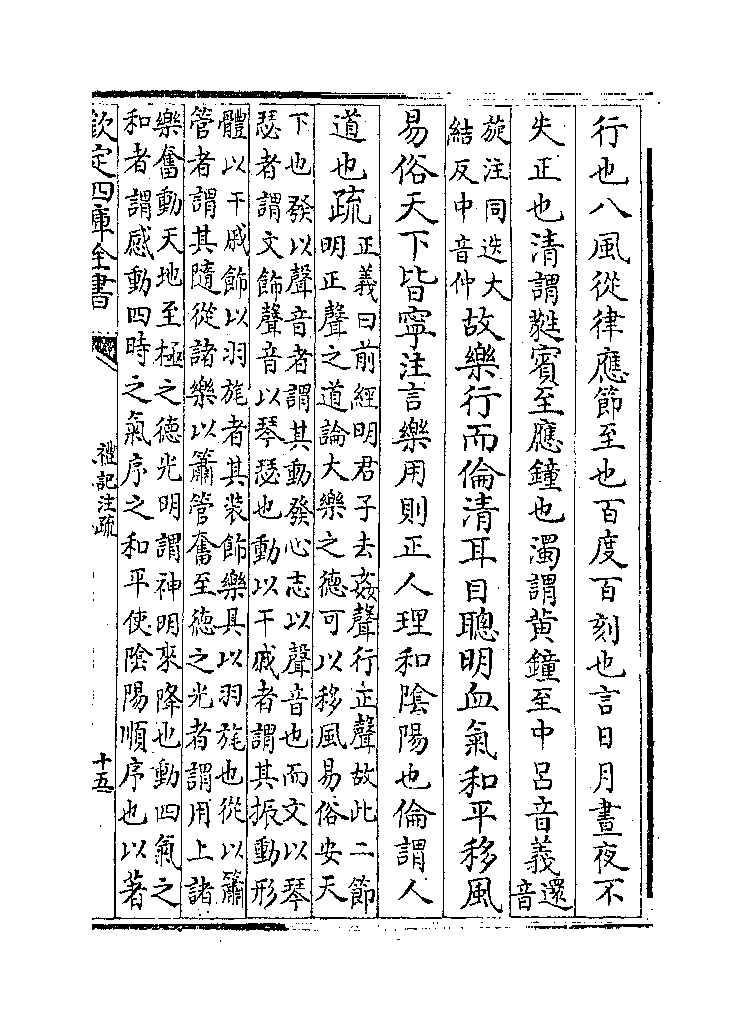 行也八風從律應節至也百度百刻也言日月晝夜不
失正也清謂蕤賓至應鐘也濁謂黄鐘至中呂音義還音
旋注同迭大結反中音仲故樂行而倫清耳目聰明血氣和平移風
易俗天下皆寧注言樂用則正人理和隂陽也倫謂人
道也疏正義曰前經明君子去姦聲行正聲故此二節
明正聲之道論大樂之德可以移風易俗安天
下也發以聲音者謂其動發心志以聲音也而文以琴
瑟者謂文飾聲音以琴瑟也動以干戚者謂其振動形
體以干戚飾以羽旄者其装飾樂具以羽旄也從以簫
管者謂其隨從諸樂以簫管奮至徳之光者謂用上諸
樂奮動天地至極之德光明謂神明來降也動四氣之
和者謂感動四時之氣序之和平使隂陽順序也以著
欽定四庫全書
禮記注疏
十五